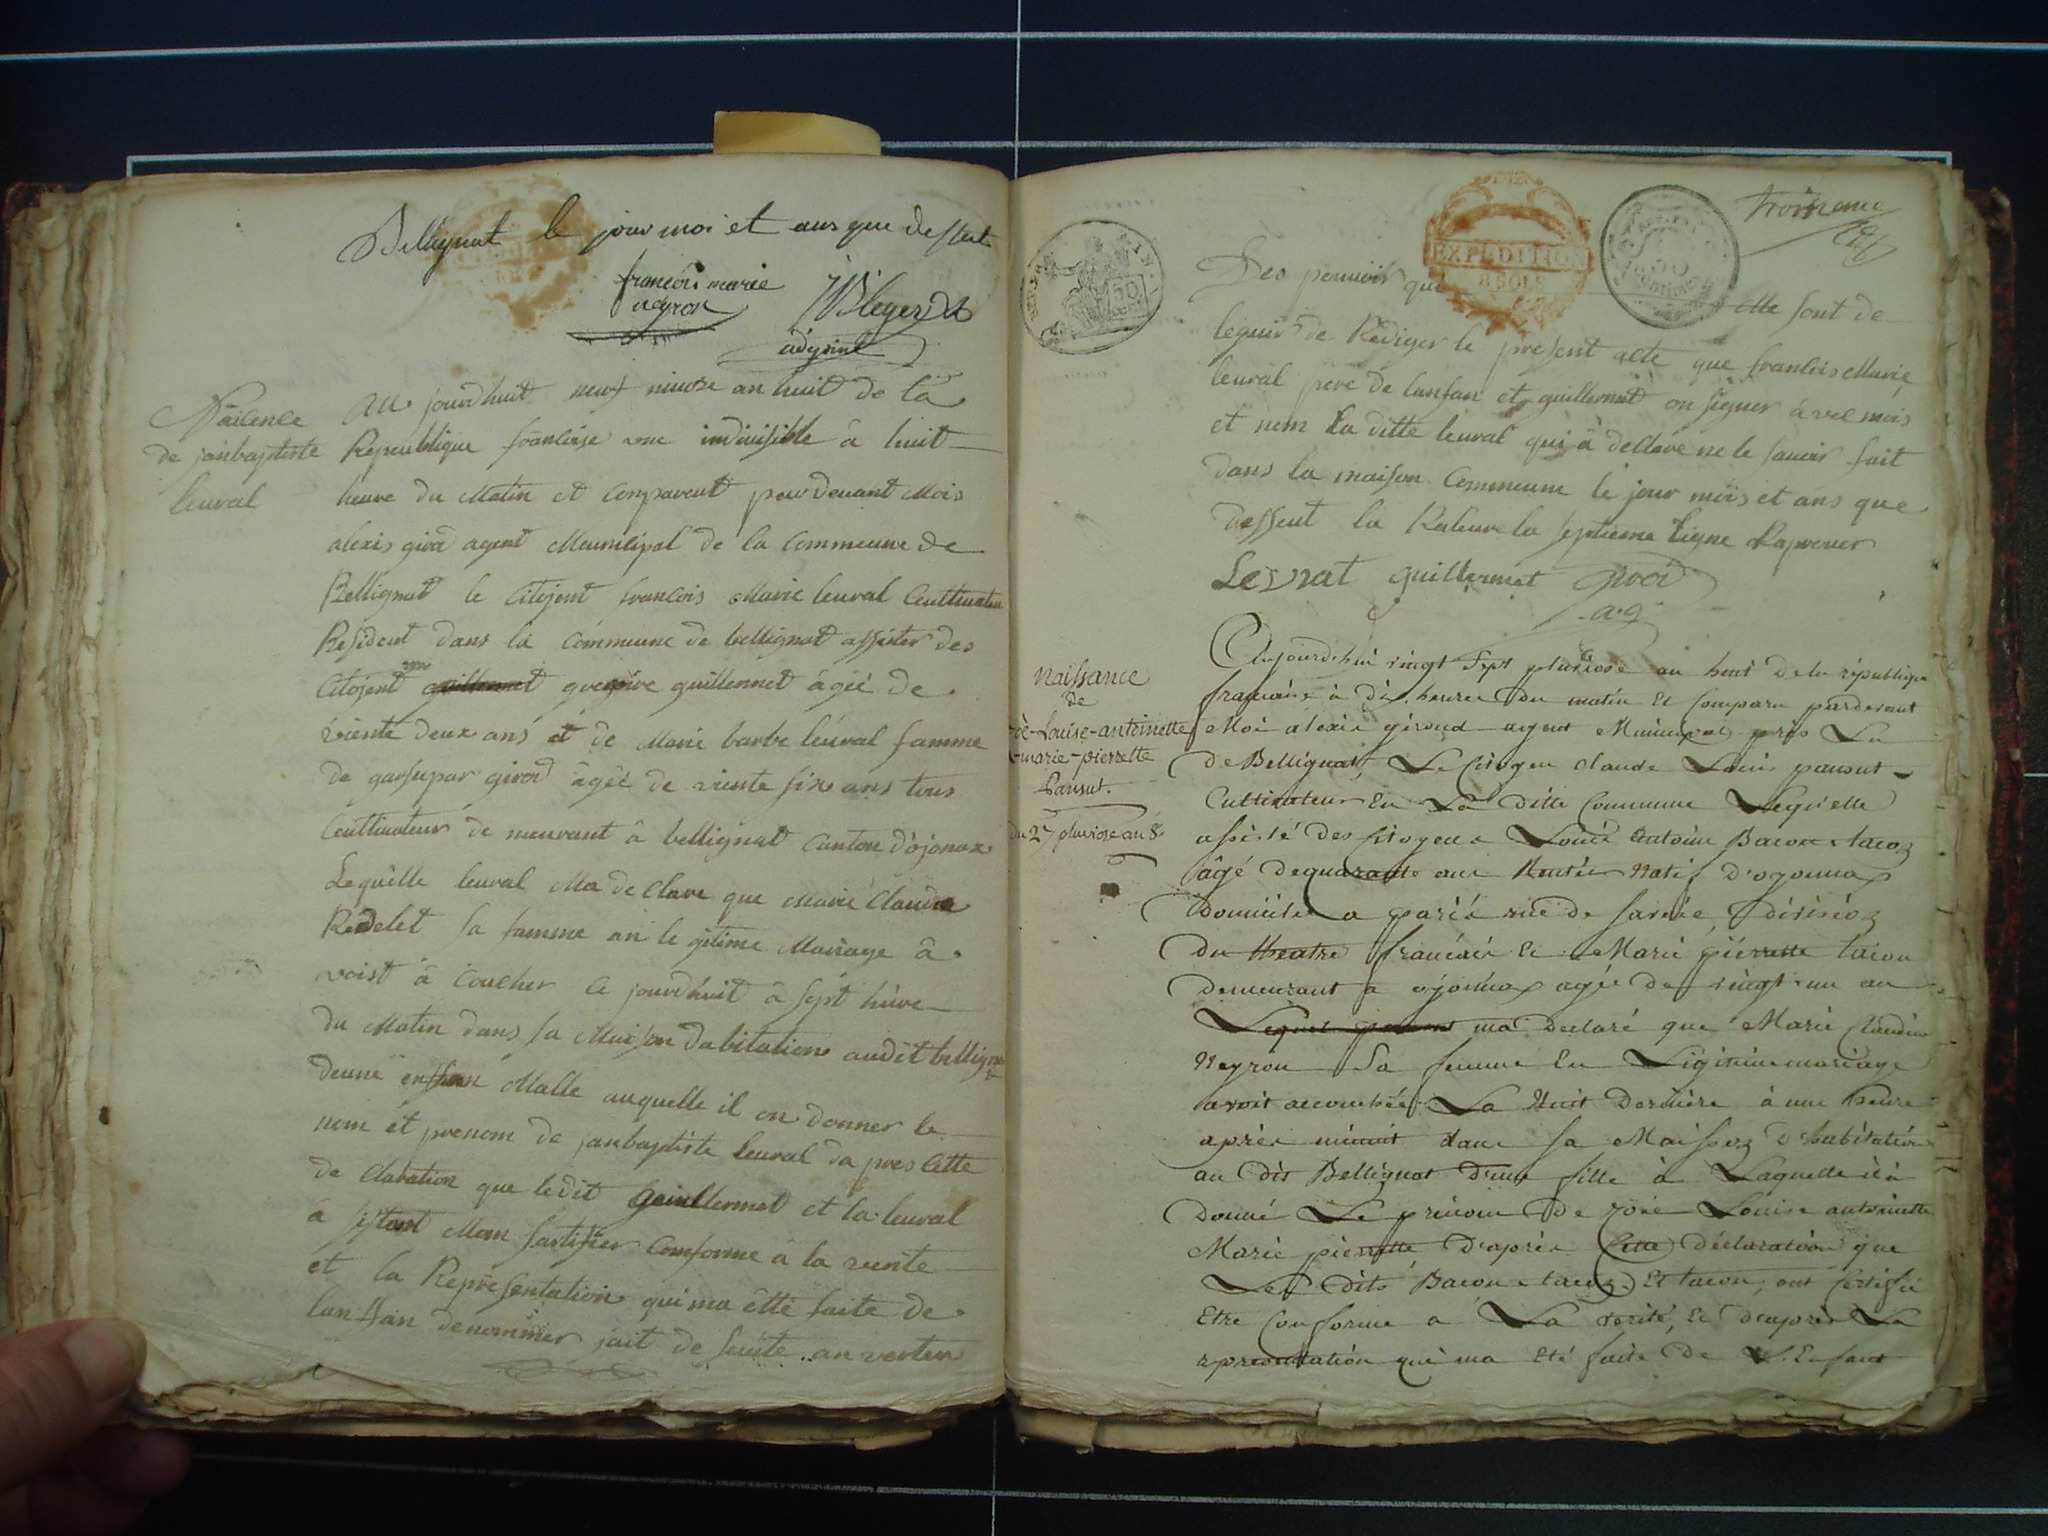 Bellignat le jour moi et ans que dessut
françois marie
neyron
adjoint
Naicence
de janbaptiste
leuval
Au jourdhuit neuf nivoze an huit de la
Republique francoise une indivisible â huit
heure du Matin et Comparent par devant Mois
alexis girod agent Municipal de la Commeune de
Bellignat le Citojent francois Marie leuval Cultivateur
Resident dans la Commeune de bellignat assister des
Citojent gregoire guillermet âgée de
viente deux ans et de Marie barbe leuval famme
de gaspar girod âgée de viente six ans tous
Cultivateur de meurant â bellignat Canton d'ojonax
Lequelle leuval Ma de Clare que Marie Claudine
Rédelet sa famme an le gitime Mairage â
voist â Coucher Ce jourdhuit â sept héure
du Matin dans sa Maison dabitation audit bellignat
deune enfan Malle auquelle il on donner le
nom et prenom de janbaptiste leuval da pres Cette
de Claration que ledit guillermet et la leuval
Mon sartifier Comforme â la veritè
et la Représentation qui ma êtté faite de
lanffan denommer jait de suite an vertu
EXPEDITION
8 SOLS
50
troisieme
Des pouvoir que
elle sont de
leguer de Rédiger le present acte que francois Marie
leuval pere de lanfan et guillermet on signer â vec mois
et non La ditte leuval qui â dellare ne le savoir fait
dans la maison Commeune le jour mois et ans que
dessut la Rature la septieme ligne Raprover
Levrat guillermet girod
a.g
Naissance
de
Louise-antoinette
marie-pierrette
Pansut.
du 27 pluviose an 8.
Aujourd'hui vingt sept pluviose an huit de la république
française à dix heures du matin Et Comparu pardevant
Moi alexis giroud agent Municipal près La
De Bellignat, Le Citoyen Claude Louis pansut
Cultivateur En La dite Commune Lequelle
assisté des Citoyens Louis Antoine Bacon tacon
âgé de quarante ans Rentier Natif D'oyonnax
Domicilié a paris rue de savoie, division
du theatre français Et Marie pierrette tacon
Demeurant a oyonnax agée De vingt un an
Lequel pansut ma declaré que Marie Claudine
Neyron Sa femme En Légitime mariage
avoit accouchée La Nuit Dernière à une heure
après minuit dans sa Maison D'habitation
au dit Bellignat D'une fille à Laquelle il à
Donné Le prénom De zoée Louise antoinette
Marie pierrette, D'après Cette déclaration que
Les dits Bacon tacon Et tacon, ont Certifié
Etre Conforme a La verité, Et D'après La
représentation qui ma Eté faite De L'Enfant